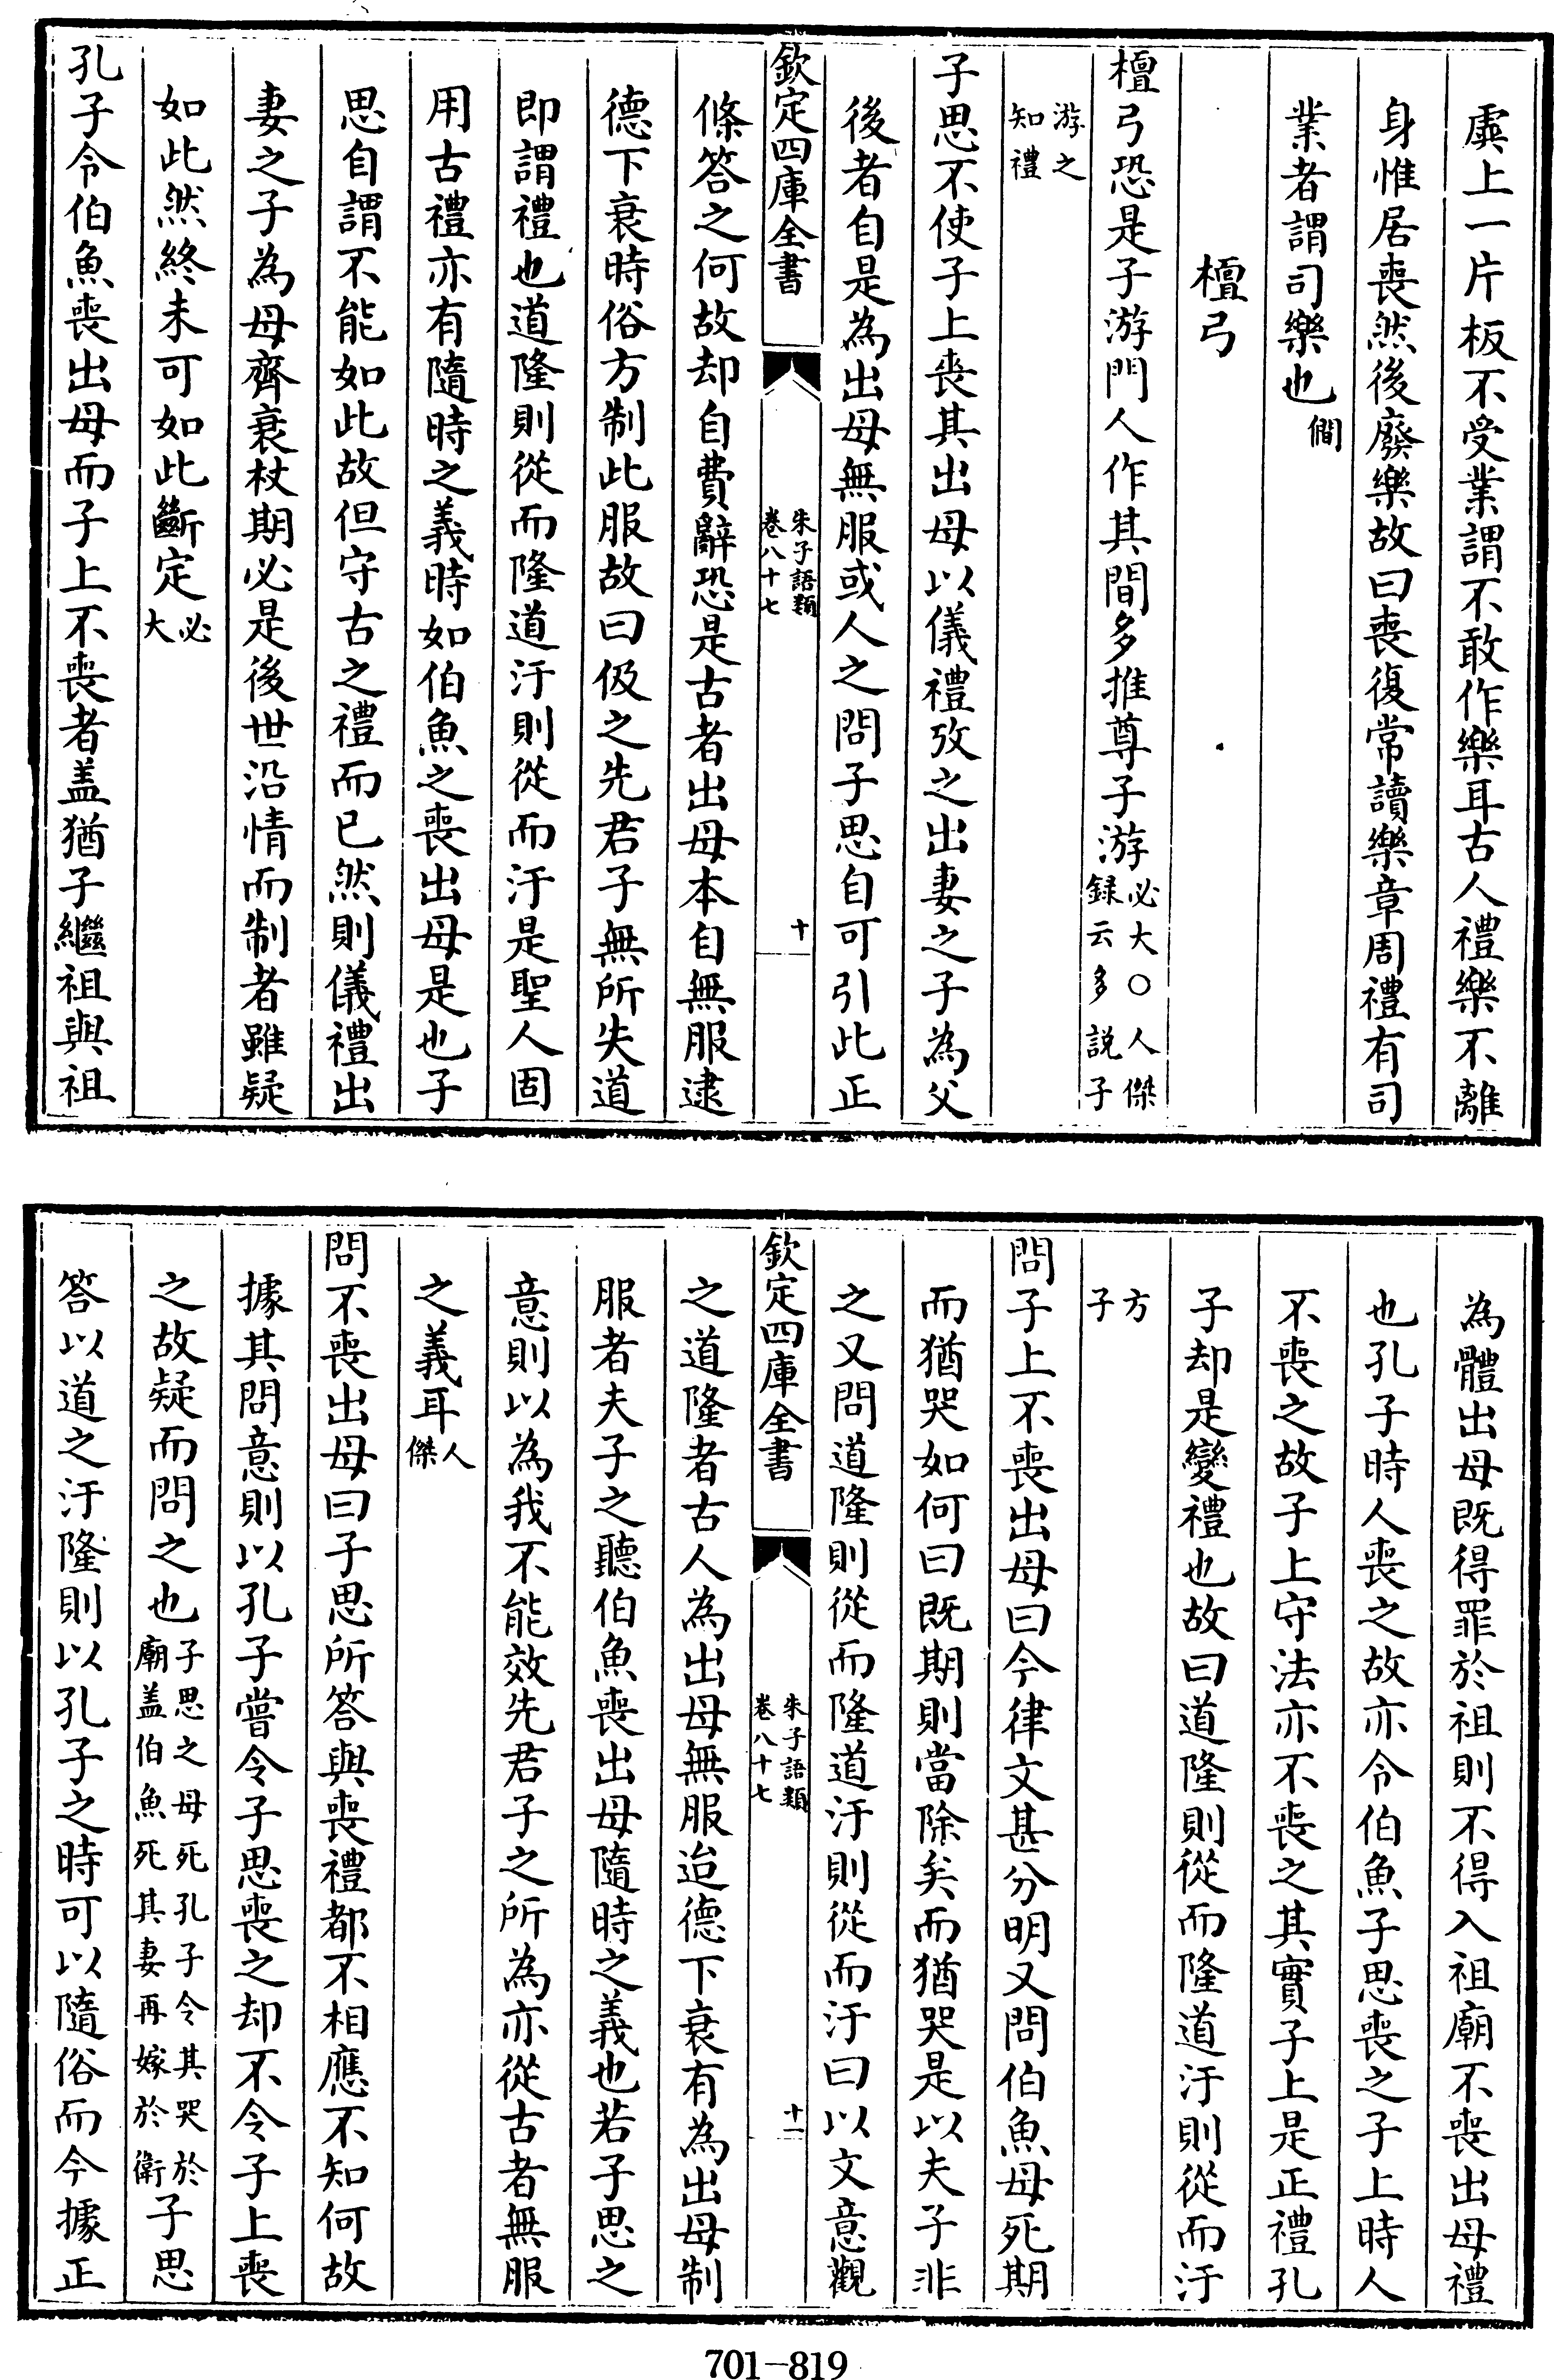 虡上一片板不受業謂不敢作樂耳古人禮樂不離
身惟居喪然後廢樂故曰喪復常讀樂章周禮有司
業者謂司樂也僩
檀弓
檀弓恐是子游門人作其間多推尊子游必大○人傑録云多説子
游之知禮
子思不使子上喪其出母以儀禮攷之出妻之子為父
後者自是為出母無服或人之問子思自可引此正
欽定四庫全書
朱子語類
卷八十七
十
條答之何故却自費辭恐是古者出母本自無服逮
德下衰時俗方制此服故曰伋之先君子無所失道
即謂禮也道隆則從而隆道汙則從而汙是聖人固
用古禮亦有隨時之義時如伯魚之喪出母是也子
思自謂不能如此故但守古之禮而已然則儀禮出
妻之子為母齊衰杖期必是後世沿情而制者雖疑
如此然終未可如此斷定必大
孔子令伯魚喪出母而子上不喪者盖猶子繼祖與祖
為體出母既得罪於祖則不得入祖廟不喪出母禮
也孔子時人喪之故亦令伯魚子思喪之子上時人
不喪之故子上守法亦不喪之其實子上是正禮孔
子却是變禮也故曰道隆則從而隆道汙則從而汙
方子
問子上不喪出母曰今律文甚分明又問伯魚母死期
而猶哭如何曰既期則當除矣而猶哭是以夫子非
之又問道隆則從而隆道汙則從而汙曰以文意觀
欽定四庫全書
朱子語類
卷八十七
十一
之道隆者古人為出母無服迨德下衰有為出母制
服者夫子之聽伯魚喪出母隨時之義也若子思之
意則以為我不能效先君子之所為亦從古者無服
之義耳人傑
問不喪出母曰子思所答與喪禮都不相應不知何故
據其問意則以孔子嘗令子思喪之却不令子上喪
之故疑而問之也子思之母死孔子令其哭於廟盖伯魚死其妻再嫁於衛子思
答以道之汙隆則以孔子之時可以隨俗而今據正
701-819